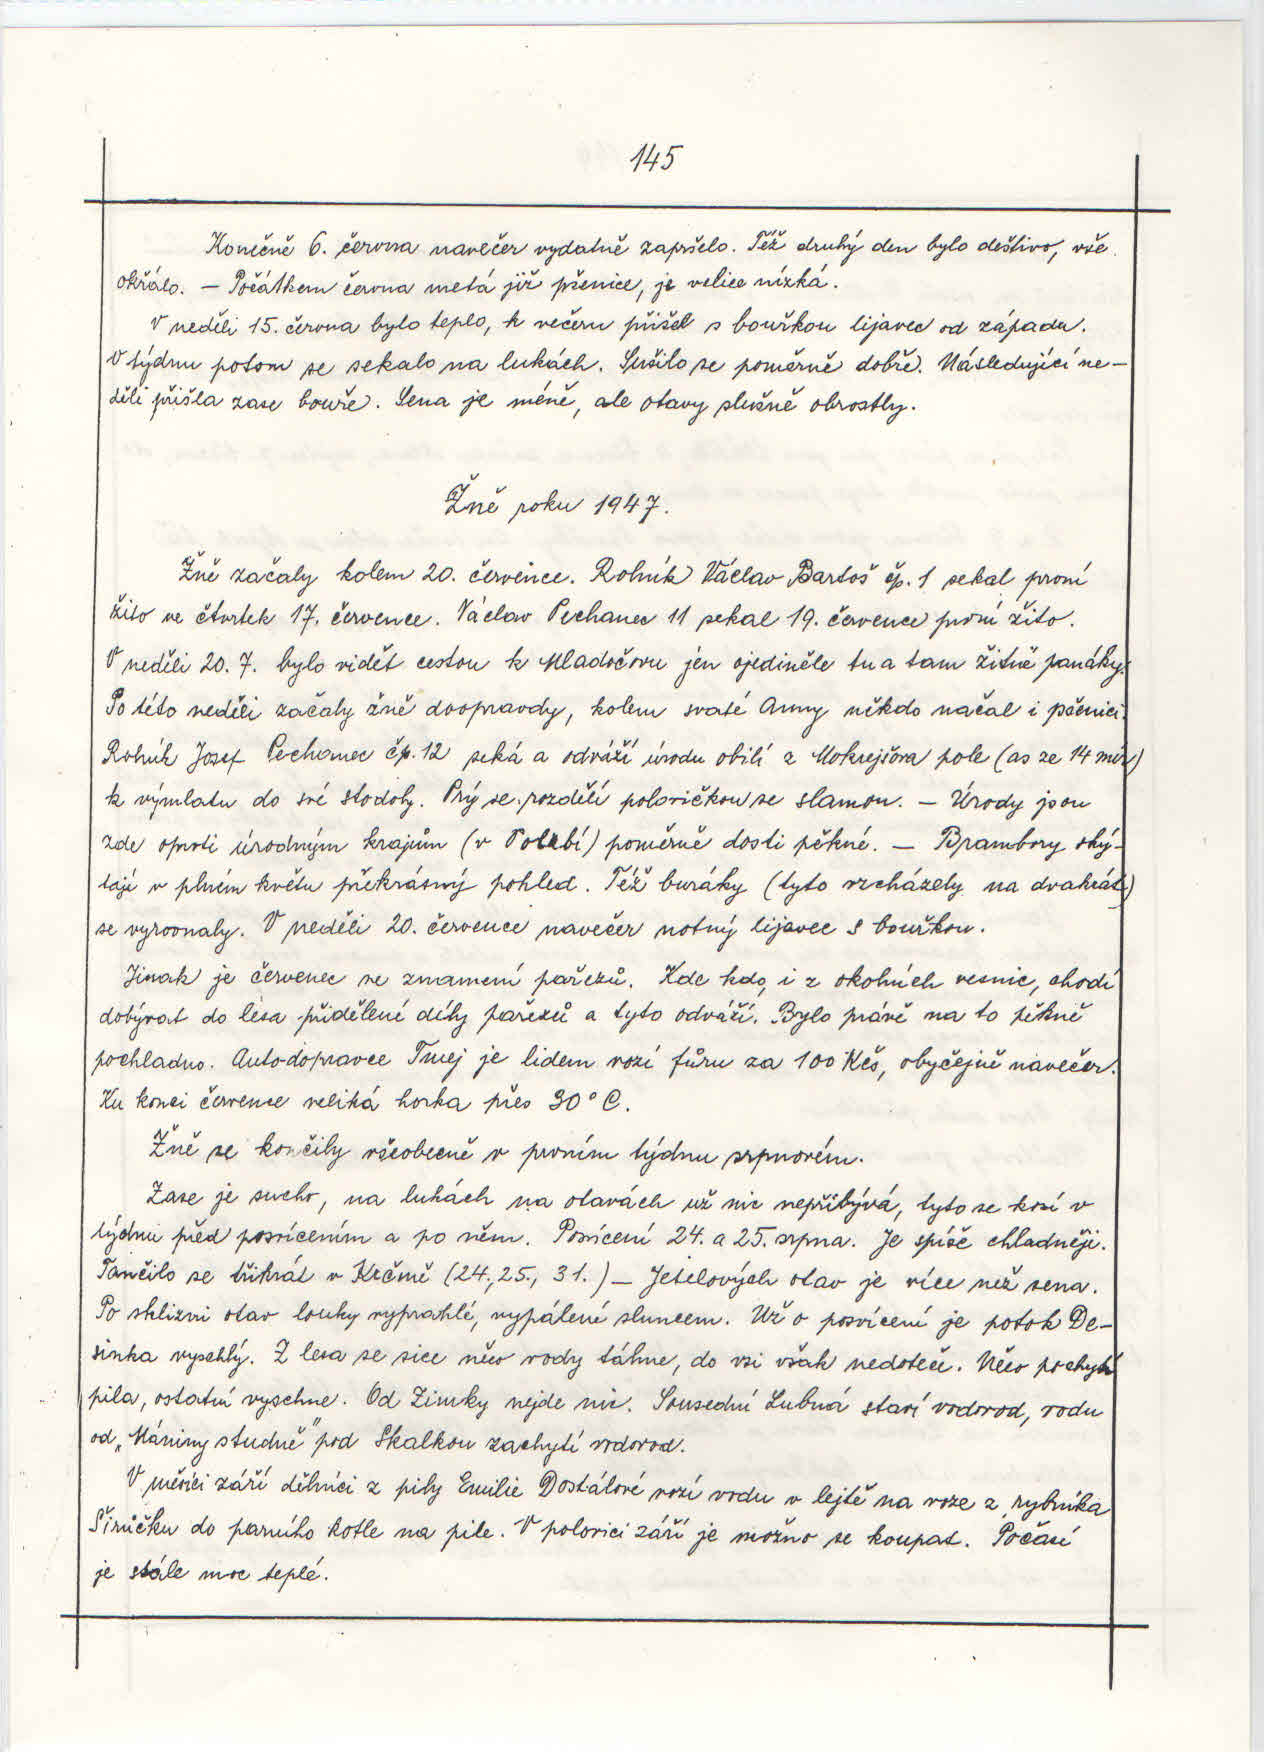 145
Konečně 6. června navečer vydatně zapršelo. Též druhý den bylo deštivo, vše
okřálo. — Počátkem června metá již pšenice, je velice nízká.
V neděli 15. června bylo teplo, k večeru přišel s bouřkou lijavec od západu.
V týdnu potom se sekalo na lukách. Sušilo se poměrně dobře. Následující ne-
děli přišla zase bouře. Sena je méně, ale otavy slušně obrostly.
Žně roku 1947.
Žně začaly kolem 20. července. Rolník Václav Bartoš čp. 1 sekal první
žito ve čtvrtek 17. července. Václav Pechanec 11 sekal 19. července první žito.
V neděli 20. 7. bylo vidět cestou k Mladočovu jen ojediněle tu a tam žitné panáky.
Po této neděli začaly žně doopravdy, kolem svaté Anny někdo načal i pšenici.
Rolník Josef Pechanec čp. 12 seká a odváží úrodu obilí z Mokrejšova pole (as ze 14 měr)
k výmlatu do své stodoly. Prý se rozdělí polovičkou se slamou. — Úrody jsou
zde oproti úrodným krajům (v Polabí) poměrně dosti pěkné. — Brambory ský-
tají v plném květu překrásný pohled. Též buráky (tyto vzcházely na dvakrát)
se vyrovnaly. V neděli 20. července navečer notný lijavec s bouřkou.
Jinak je červenec ve znamení pařezů. Kde kdo, i z okolních vesnic, chodí
dobývat do lesa přidělené díly pařezů a tyto odváží. Bylo právě na to pěkně
pochladno. Autodopravce Tmej je lidem vozí fůru za 100 Kčs, obyčejně navečer.
Ku konci července veliká horka přes 30° C.
Žně se končily všeobecně v prvním týdnu srpnovém.
Zase je sucho, na lukách na otavách už nic nepřibývá, tyto se kosí v
týdnu před posvícením a po něm. Posvícení 24. a 25. srpna. Je spíše chladněji.
Tančilo se třikrát v Krčmě (24., 25., 31.) — Jetelových otav je více než sena.
Po sklizni otav louky vyprahlé, vypálené sluncem. Už o posvícení je potok De-
sinka vyschlý. Z lesa se sice něco vody táhne, do vsi však nedoteče. Něco pochytí
pila, ostatní vyschne. Od Zimky nejde nic. Sousední Lubná staví vodovod, vodu
od „Máriny studně" pod Skalkou zachytí vodovod.
V měsíci září dělníci z pily Emilie Dostálové vozí vodu v lejtě na voze z rybníka
Širůčku do parního kotle na pile. V polovici září je možno se koupat. Počasí
je stále moc teplé.